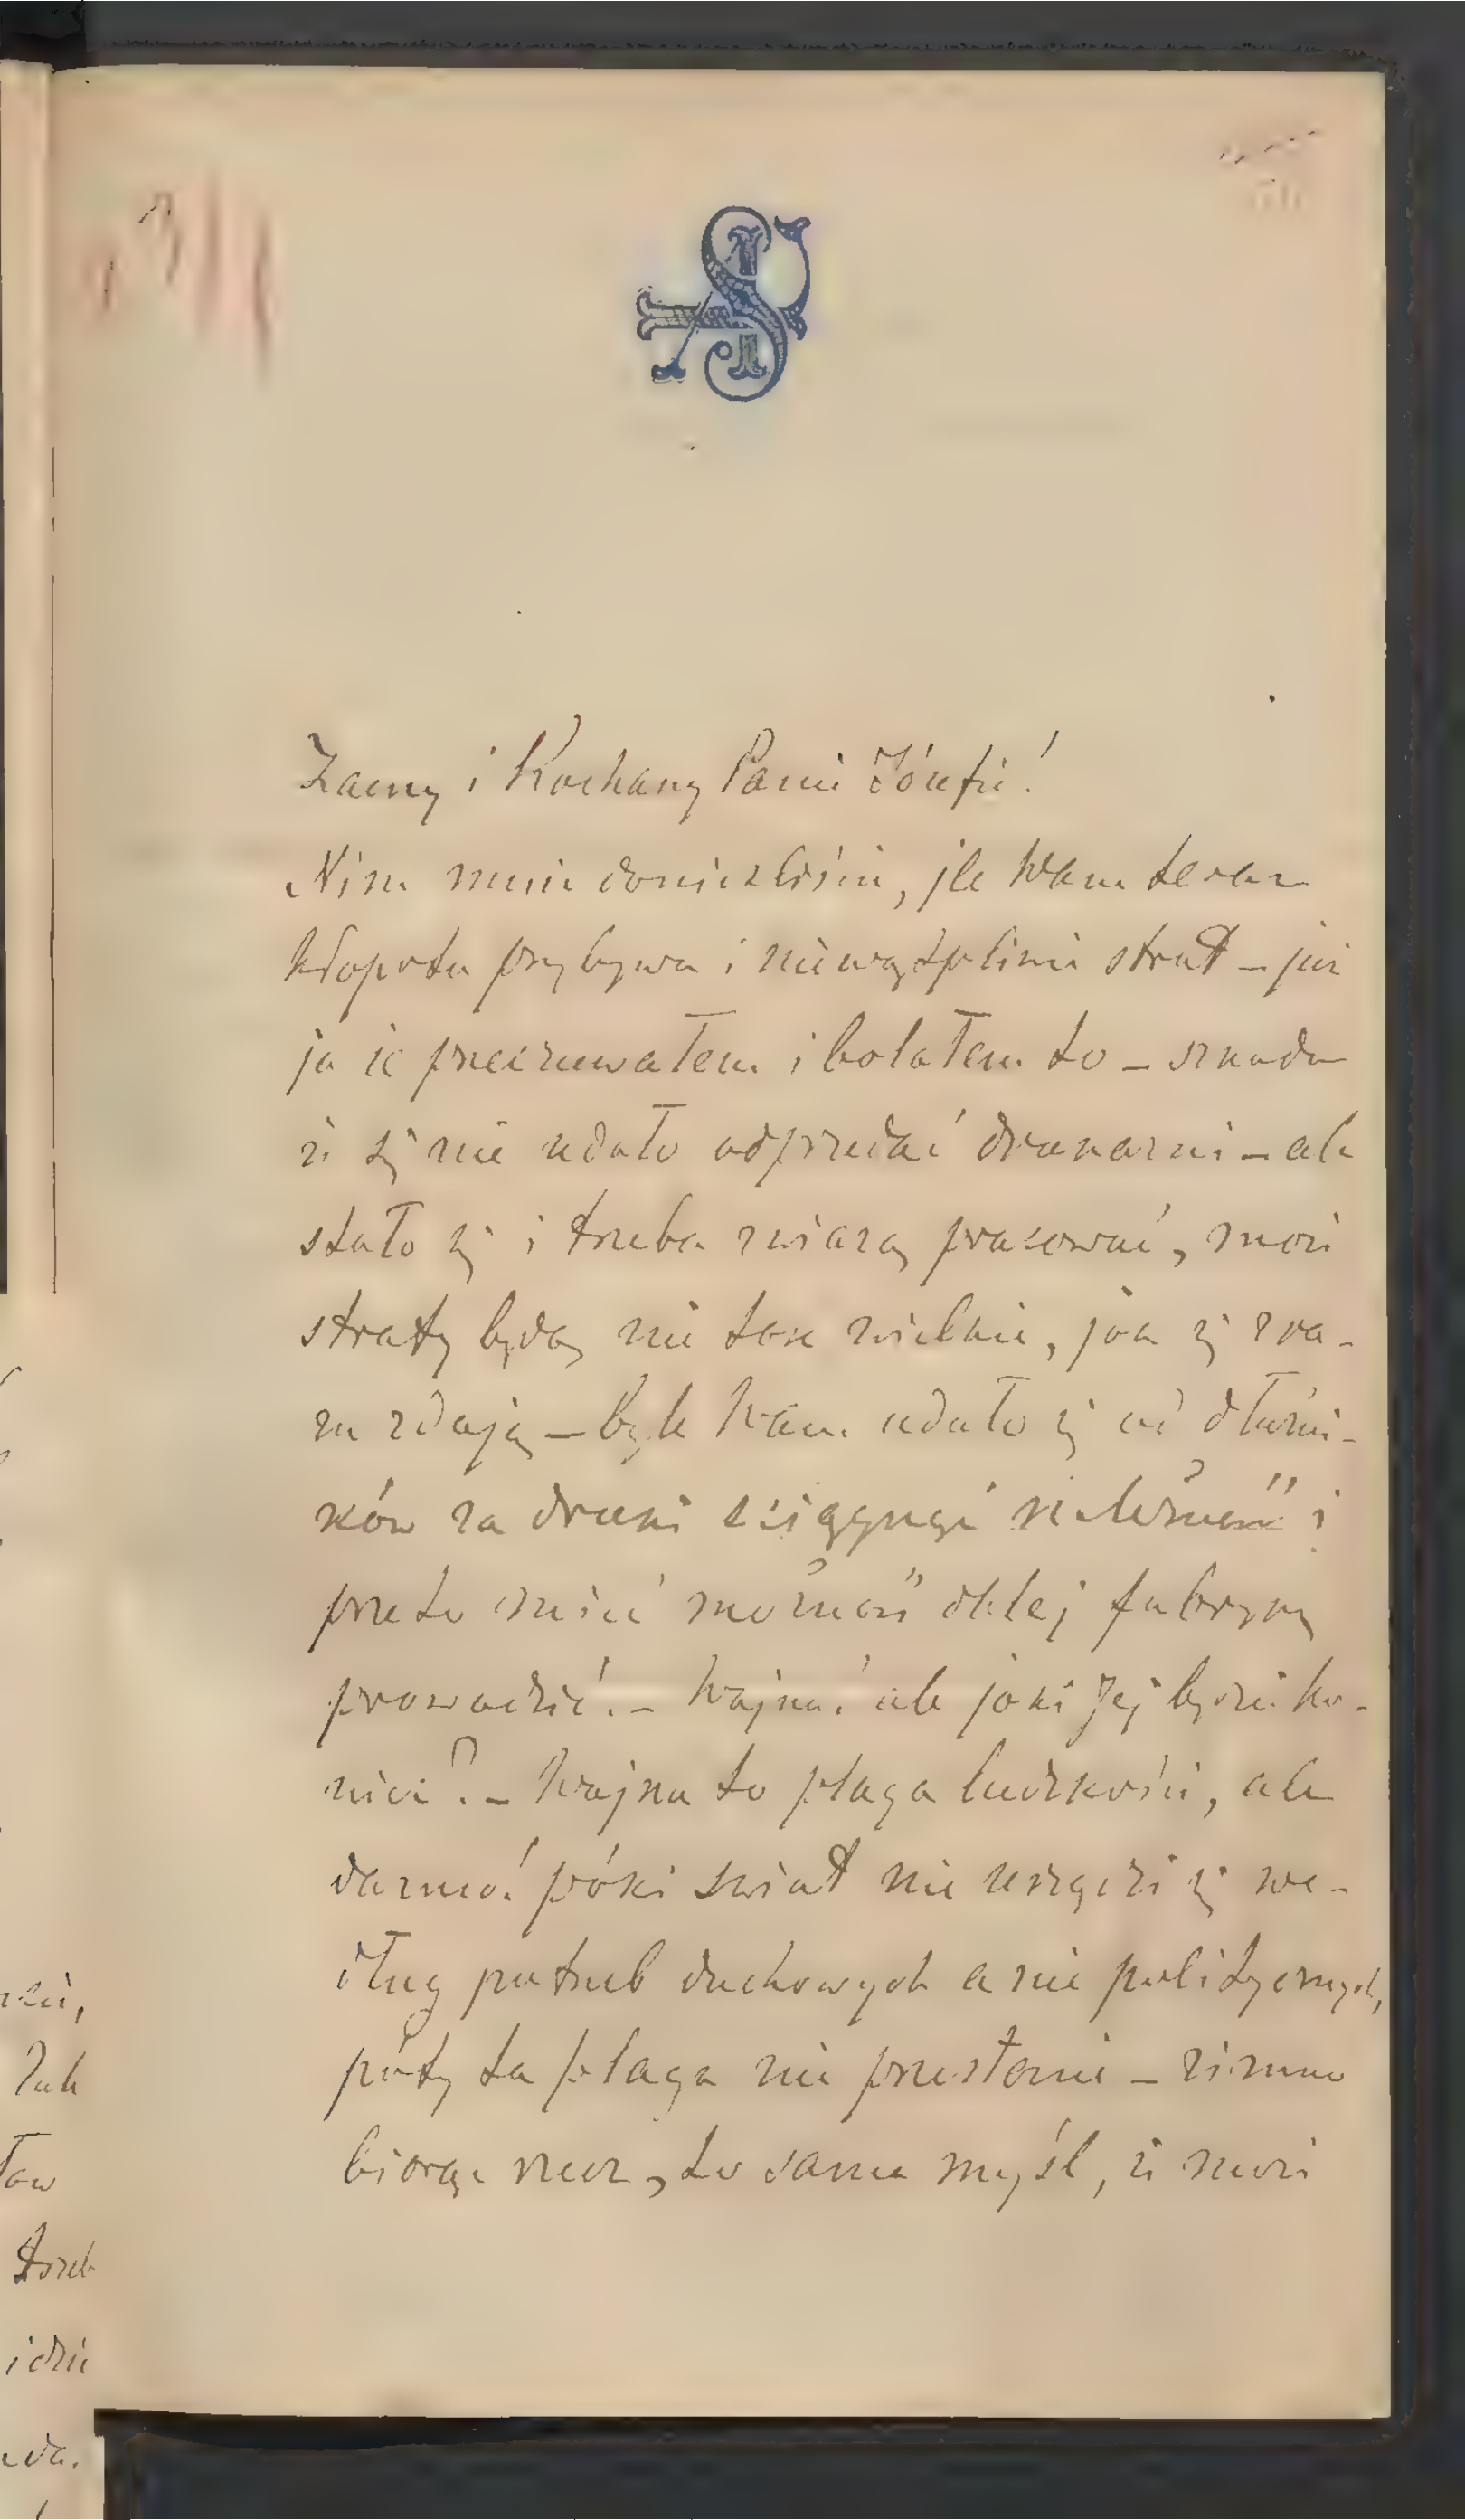 Zacny i Kochany Panie Józefie!
Nim mnie donieśliście, jle Wam teraz
kłopotu przybywa i niewątpliwie strat – już
ja je przeczuwałem i bolałem to – szkoda
że się nie udało odprzedać drukarni – ale
stało się i trzeba z wiarą pracować, może
straty będą nie tak wielkie, jak się zra-
zu zdają – byle Wam udało się od dłużni-
ków za druki ściągnąć należność i
przeto mieć możność dalej fabrykę
prowadzić. – Wojna! ale jaki Jej będzie ko-
niec? – Wojna to plaga ludzkości, ale
darmo! póki świat nie urządzi się we-
dług potrzeb duchowych a nie politycznych,
póty ta plaga nie przestanie – zimno
biorąc rzecz, to sama myśl, że może